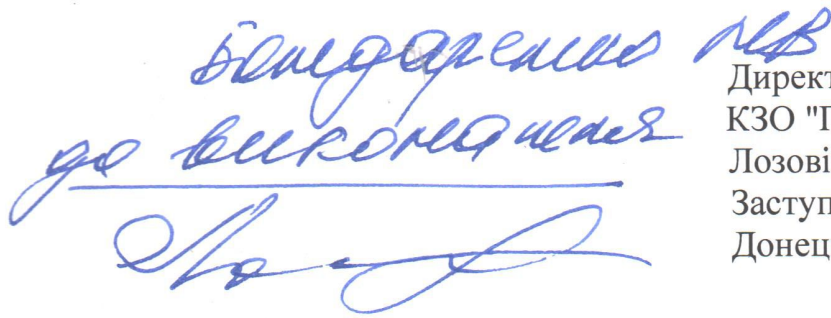 Бондаренко МВ
до виконання
Директ
КЗО "П
Лозові
Заступ
Донец